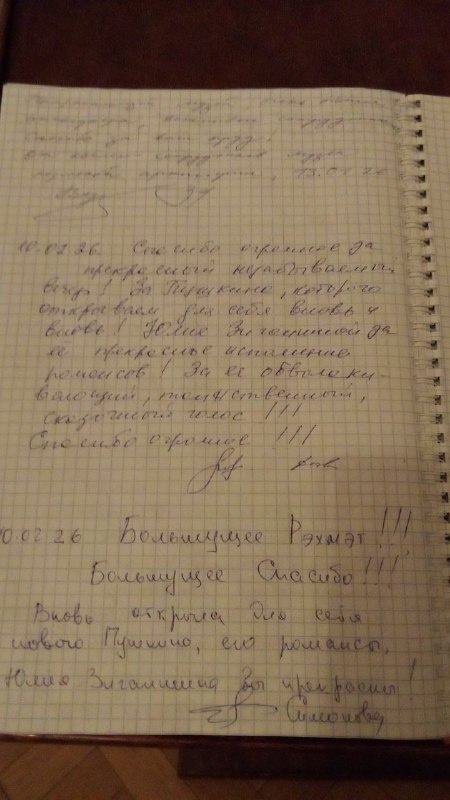 Спасибо за ваш труд!
13.02.26
10.02.26 Спасибо огромное за
прекрасный незабываемый
вечер! За Пушкина, которого
открываем для себя вновь и
вновь! Юлие Зиганшиной за
ее прекрасное исполнение
романсов! За ее обволаки-
вающий, таинственный,
сказочный голос!!!
Спасибо огромное!!!
10.02.26 Большущее Рэхмэт!!!
Большущее Спасибо!!!
Вновь открыла для себя
нового Пушкина, его романсы,
Юлия Зиганшина Вы прекрасны!
Симонова